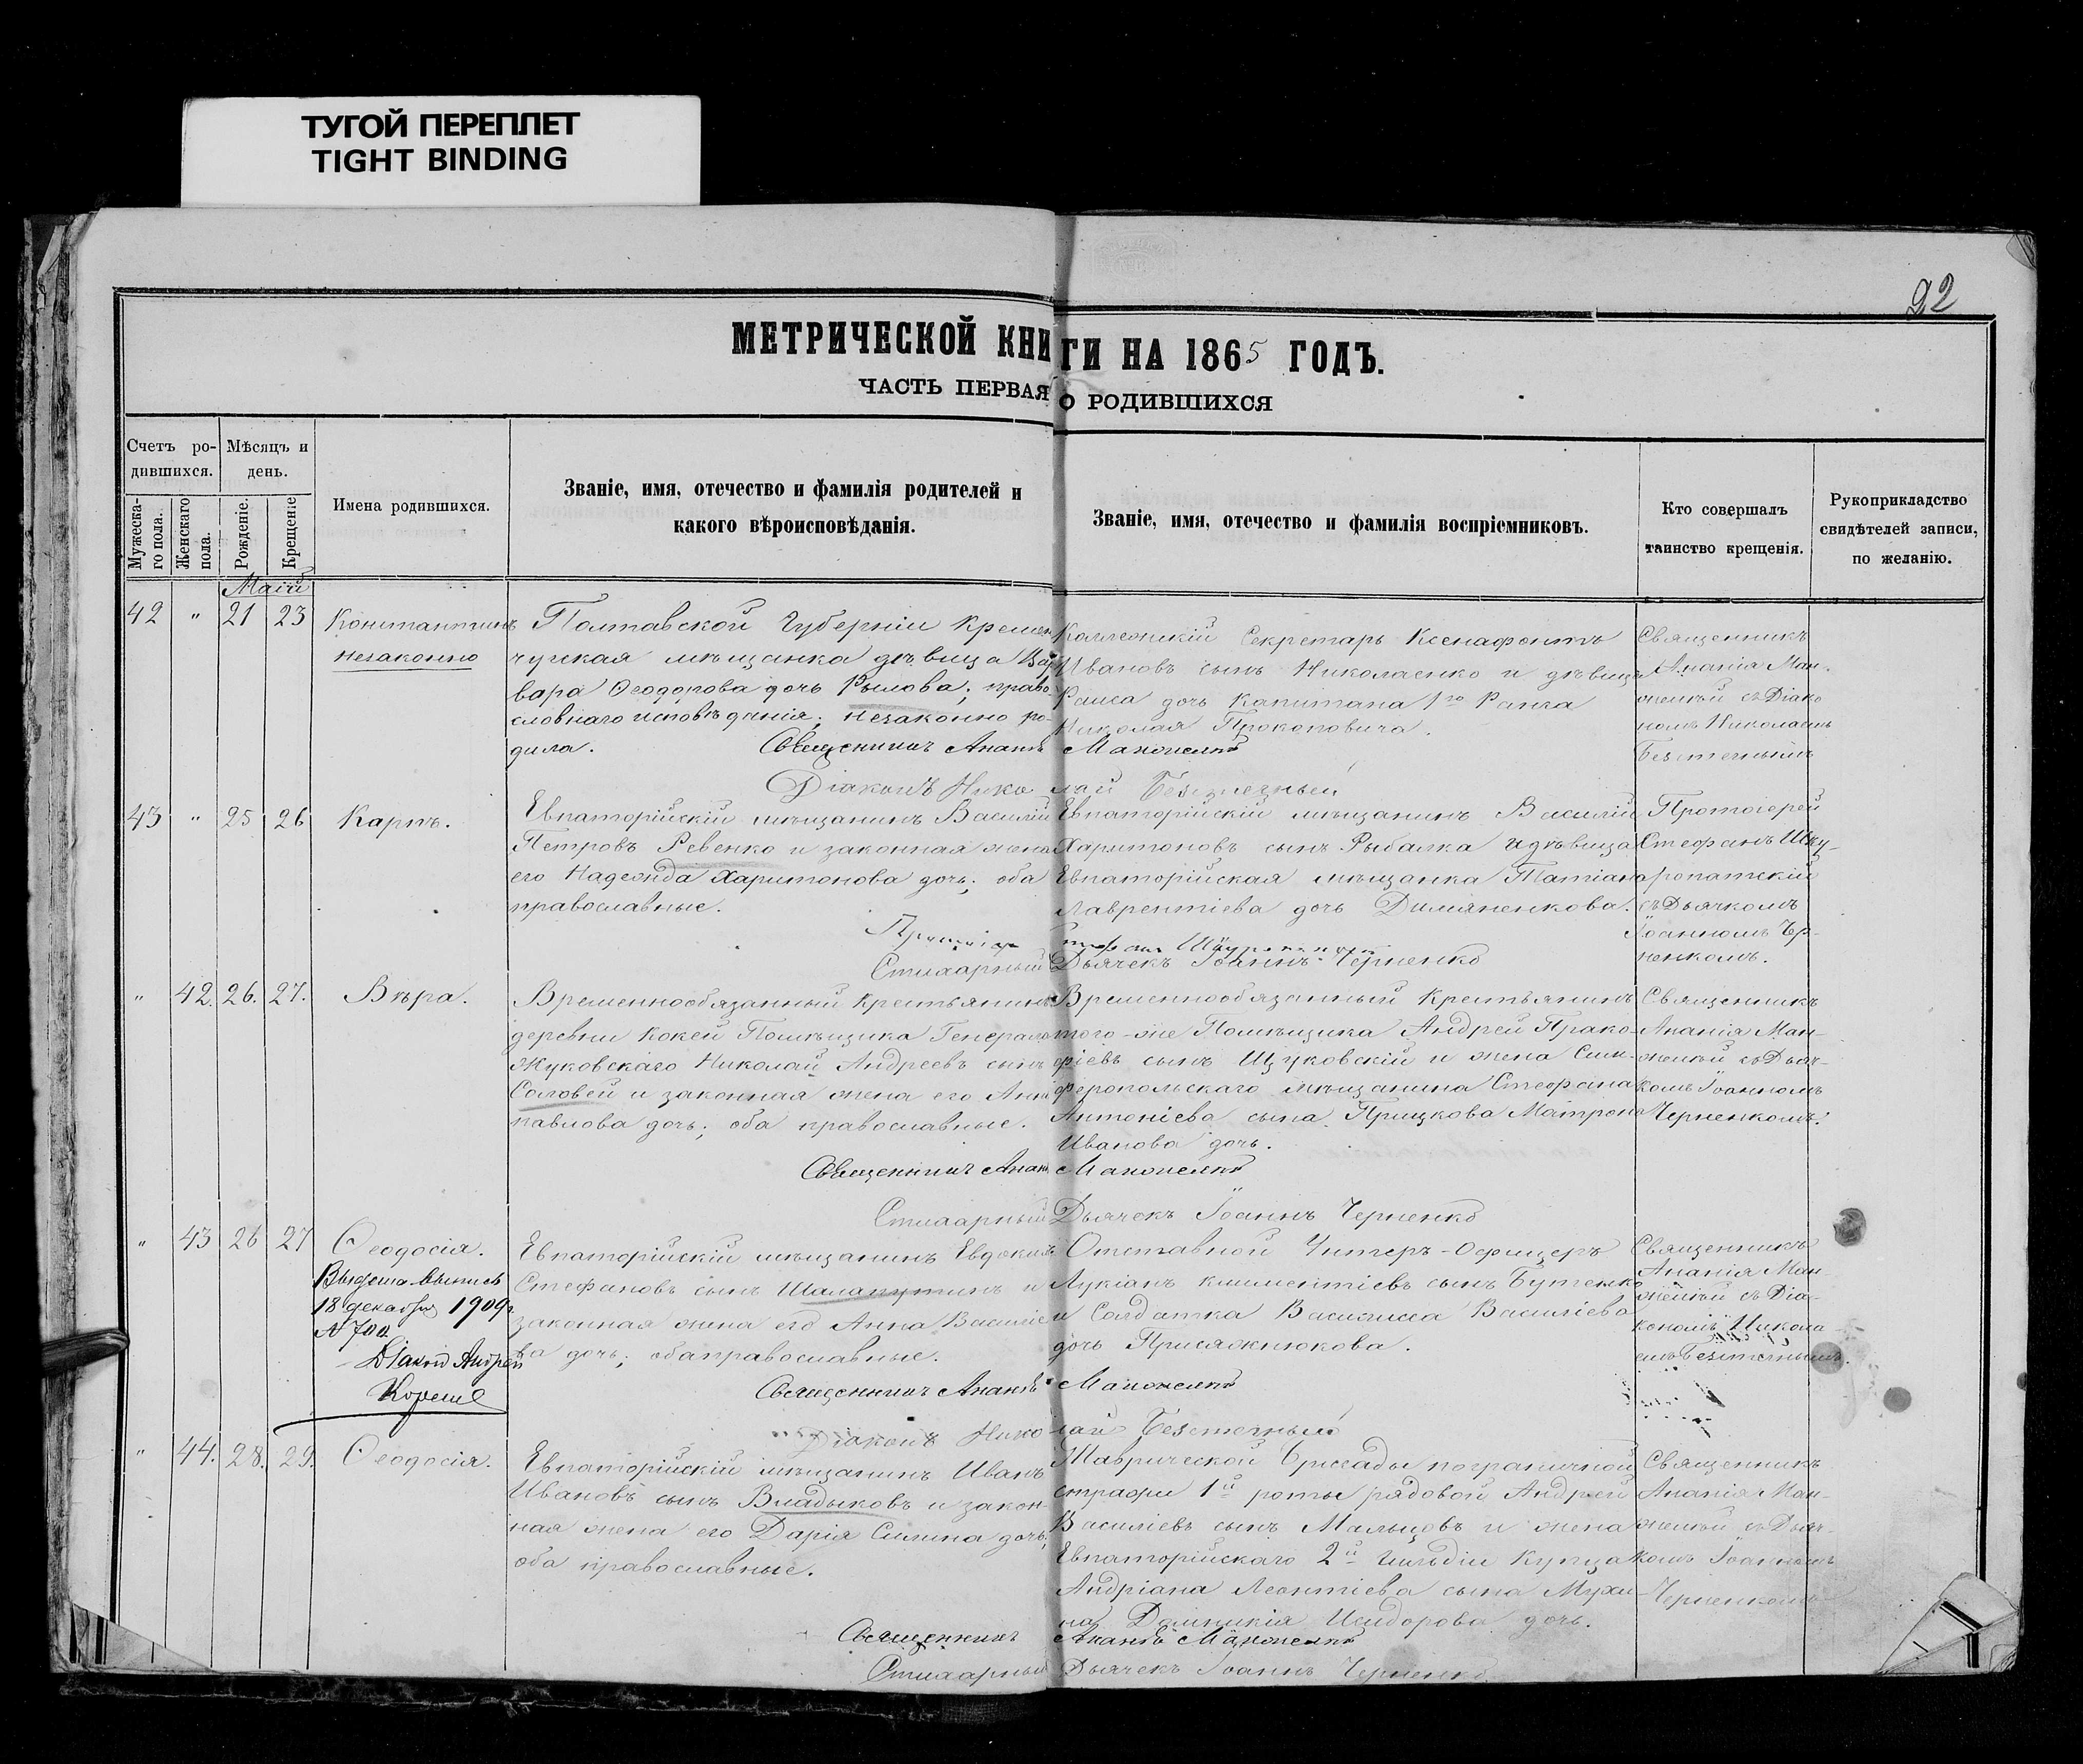 ТУГОЙ ПЕРЕПЛЕТ
TIGHT BINDING
22
МЕТРИЧЕСКОЙ КНИГИ НА 1865 ГОДЪ.
ЧАСТЬ ПЕРВАЯ О РОДИВШИХСЯ
Счетъ ро-
дившихся.
Мужеска-
го пола.
Женскаго
пола.
Мѣсяцъ и
день.
Рожденіе.
Крещеніе
Имена родившихся.
Званіе, имя, отечество и фамилія родителей и
какого вѣроисповѣданія.
Званіе, имя, отечество и фамилія воспріемниковъ.
Кто совершалъ
таинство крещенія.
Рукоприкладство
свидѣтелей записи,
по желанію.
Маій
42 " 21 23
Константинъ
незаконно
Полтавской Губерніи Кремен
чугская мѣщанка дѣвица Вар
вара Ѳеодорова дочь Рылова; право-
славнаго исповѣданія; незаконно ро-
дила.
Коллежскій Секретарь Ксенафонтъ
Ивановъ сынъ Николаенко и дѣвица
Раиса дочь Капитана 1го Ранга
Николая Прокоповича.
Священникъ
Ананія Ман-
желѣй съ Діако
номъ Николаемъ
Безтечнымъ
Священникъ Ананія
Діаконъ Николай Безтечный
43 " 25 26
Карпъ.
Евпаторійскій мѣщанинъ Василій
Петровъ Ревенко и законная жена
его Надежда Харитонова дочь; оба
православные.
Евпаторійскій мѣщанинъ Василій
Харитоновъ сынъ Рыбалка и дѣвица
Евпаторійская мѣщанка Татіана
Лаврентіева дочь Димяненкова.
Протоіерей
Стефанъ Шку-
ропатскій
съ Дьячкомъ
Іоанномъ Чер-
ненкомъ.
Стихарный Дьячекъ Іоаннъ Черненко
" 42. 26. 27.
Вѣра.
Временнообязанный Крестьянинъ
деревни Кокей Помѣщика Генерала
Жуковскаго Николай Андреевъ сынъ
Соловей и законная жена его Анна
Павлова дочь; оба православные.
Временнообязанный Крестьянинъ
того-же Помѣщика Андрей Прако-
фіевъ сынъ Щуковскій и жена Сим-
феропольскаго мѣщанина Стефана
Антоніева сына Прицкова Матрона
Иванова дочь.
Священникъ
Ананія Ман-
желѣй съ Дьяч-
комъ Іоанномъ
Черненкомъ.
Священникъ Ананія
Стихарный Дьячекъ Іоаннъ Черненко
" 43 26 27
Ѳеодосія.
Выдана выпись
18 декабря 1909 г.
№ 700.
Діаконъ Андрей
Евпаторійскій мѣщанинъ Евдокимъ
Стефановъ сынъ Шалапутинъ и
законная жена его Анна Василіе
ва дочь; оба православные.
Отставной Унтеръ-Офицеръ
Лукіанъ Климентіевъ сынъ Бутенко
и Солдатка Василиса Василіева
дочь Присяжнюкова.
Священникъ
Ананія Ман-
желѣй съ Діа-
кономъ Никола-
емъ Безтечнымъ.
Священникъ Ананія
Діаконъ Николай Безтечный
" 44. 28. 29.
Ѳеодосія.
Евпаторійскій мѣщанинъ Иванъ
Ивановъ сынъ Владыковъ и закон-
ная жена его Дарія Силина дочь;
оба православные.
Таврической бригады пограничной
стражи 1й роты рядовой Андрей
Василіевъ сынъ Мальцовъ и жена
Евпаторійскаго 2й Гильдіи Купца
Андріана Леонтіева сына Мухи-
на Домникія Исидорова дочь.
Священникъ
Ананія Ман-
желѣй съ Дьяч-
комъ Іоанномъ
Черненкомъ
Священникъ Ананія
Стихарный Дьячекъ Іоаннъ Черненко